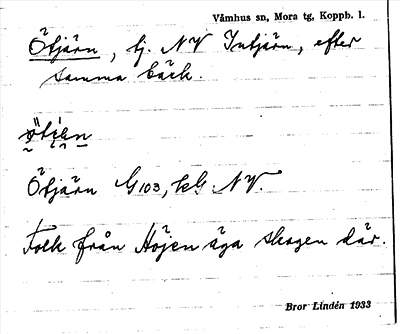 Våmhus sn, Mora tg, Koppb. l.
Ötjärn, tj. NV Intjärn, efter
samma bäck.
Ötjärn G103, kG NV.
Folk från Höjen äga skogen där.
Bror Lindén 1933